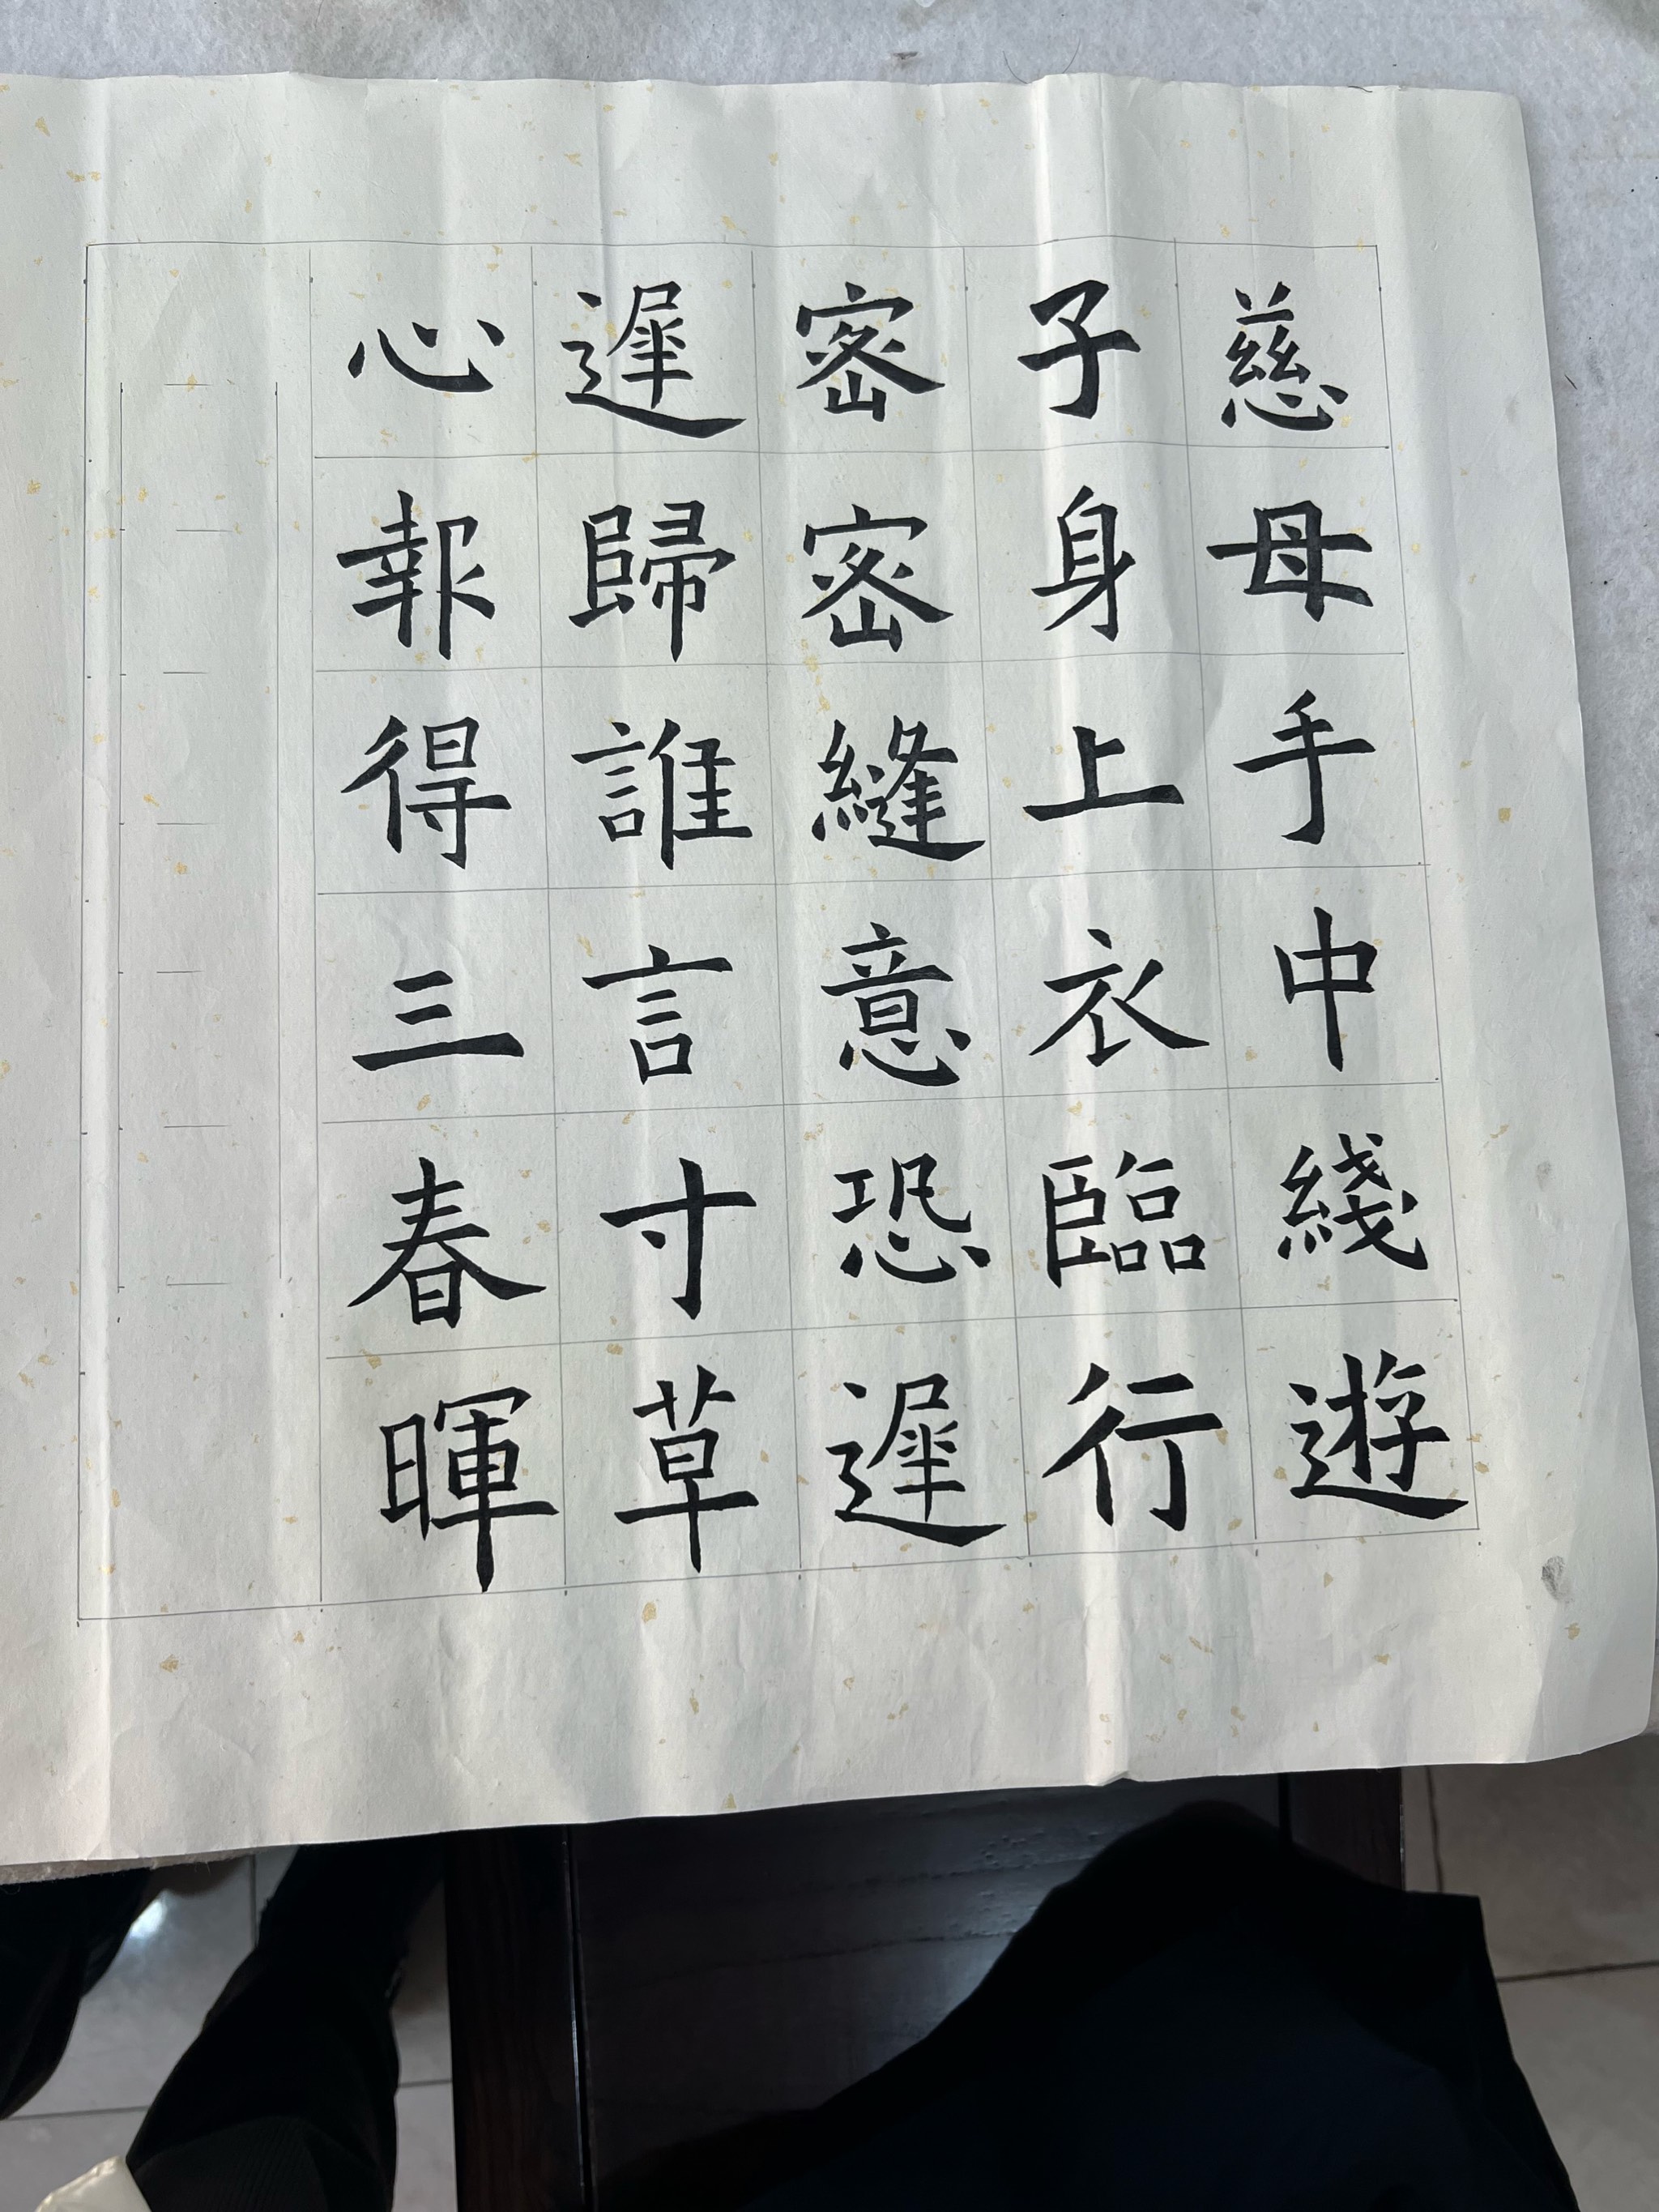 慈母手中綫遊
子身上衣臨行
密密縫意恐遲
遲歸誰言寸草
心報得三春暉